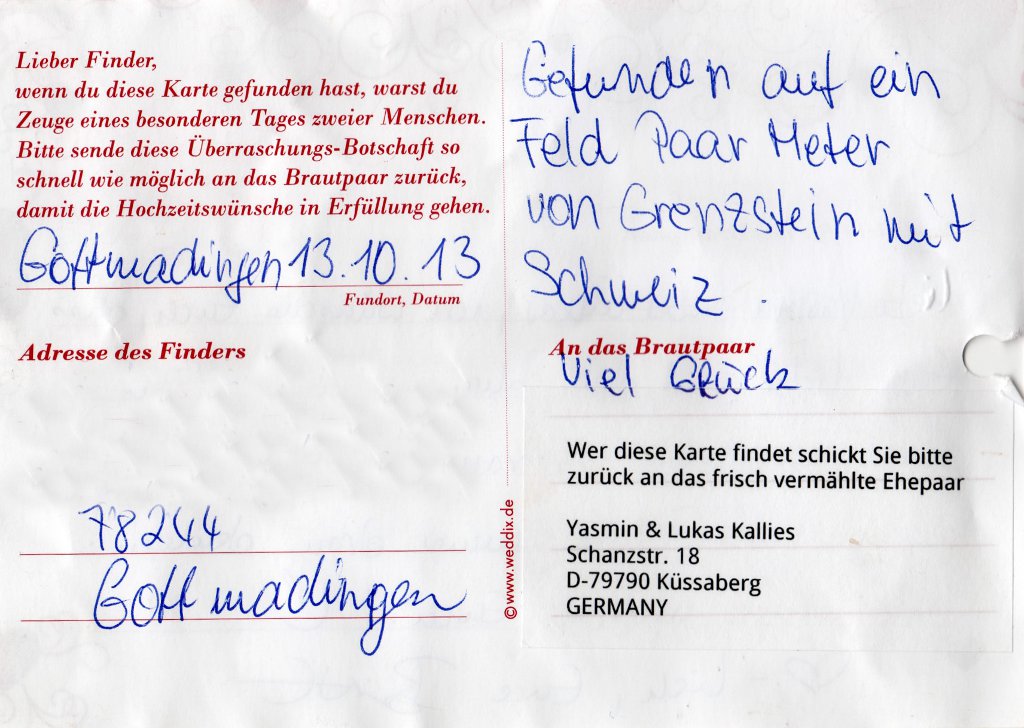 Lieber Finder,
wenn du diese Karte gefunden hast, warst du
Zeuge eines besonderen Tages zweier Menschen.
Bitte sende diese Überraschungs-Botschaft so
schnell wie möglich an das Brautpaar zurück,
damit die Hochzeitswünsche in Erfüllung gehen.
Gottmadingen 13.10.13
Fundort, Datum
Adresse des Finders
78244
Gottmadingen
© www.weddix.de
Gefunden auf ein
Feld Paar Meter
von Grenzstein mit
Schweiz.
An das Brautpaar
Viel Glück
Wer diese Karte findet schickt Sie bitte
zurück an das frisch vermählte Ehepaar
Yasmin & Lukas Kallies
Schanzstr. 18
D-79790 Küssaberg
GERMANY